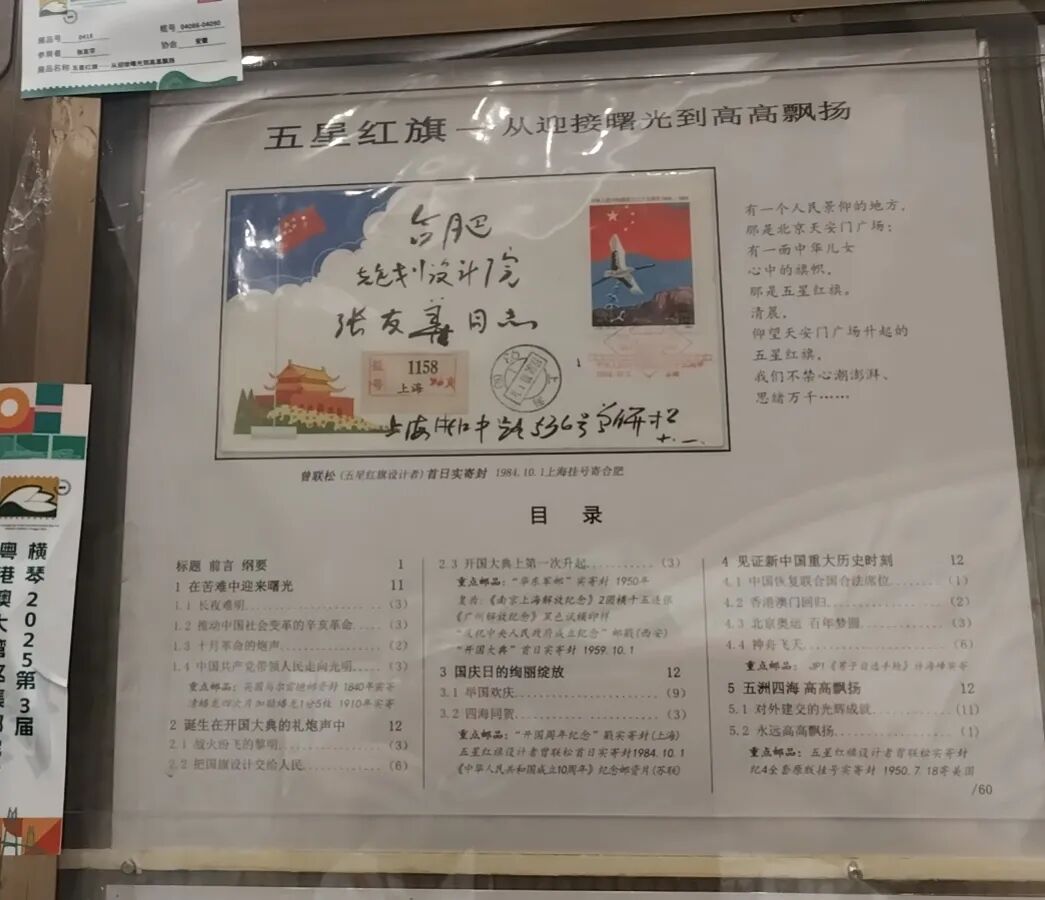 展品号 0418
框号 04086-04090
参展者 张友亭
协会 安徽
展品名称 五星红旗——从迎接曙光到高高飘扬
五星红旗—从迎接曙光到高高飘扬
合肥
设计院
张友 同志
1158
上海
上海 中路536号曾联松
十.一.
曾联松(五星红旗设计者)首日实寄封 1984.10.1上海挂号寄合肥
有一个人民景仰的地方,
那是北京天安门广场;
有一面中华儿女
心中的旗帜,
那是五星红旗。
清晨,
仰望天安门广场升起的
五星红旗,
我们不禁心潮澎湃、
思绪万千……
目 录
标题 前言 纲要 1
1 在苦难中迎来曙光 11
1.1 长夜难明 (3)
1.2 推动中国社会变革的辛亥革命 (3)
1.3 十月革命的炮声 (2)
1.4 中国共产党带领人民走向光明 (3)
重点邮品:英国马尔雷迪邮资封 1840年实寄
清蟠龙四次片加贴蟠龙1分5枚 1910年实寄
2 诞生在开国大典的礼炮声中 12
2.1 战火纷飞的黎明 (3)
2.2 把国旗设计交给人民 (6)
2.3 开国大典上第一次升起 (3)
重点邮品:“华东军邮”实寄封 1950年
《南京上海解放纪念》2圆横十五连张
《广州解放纪念》 试模印样
中央人民政府成立纪念”邮戳(西安)
“开国大典”首日实寄封 1959.10.1
3 国庆日的绚丽绽放 12
3.1 举国欢庆 (9)
3.2 四海同贺 (3)
重点邮品:“开国周年纪念”戳实寄封(上海)
五星红旗设计者曾联松首日实寄封1984.10.1
《中华人民共和国成立10周年》纪念邮资片(苏联)
4 见证新中国重大历史时刻 12
4.1 中国恢复联合国合法席位 (1)
4.2 香港澳门回归 (2)
4.3 北京奥运 百年梦圆 (3)
4.4 神舟飞天 (6)
重点邮品: JP1《男子自选手枪》许海峰实寄
5 五洲四海 高高飘扬 12
5.1 对外建交的光辉成就 (11)
5.2 永远高高飘扬 (1)
重点邮品:五星红旗设计者曾联松实寄封
纪4全套原版挂号实寄封 1950.7.18寄美国
/60
横琴2025第3届
粤港澳大湾区集邮